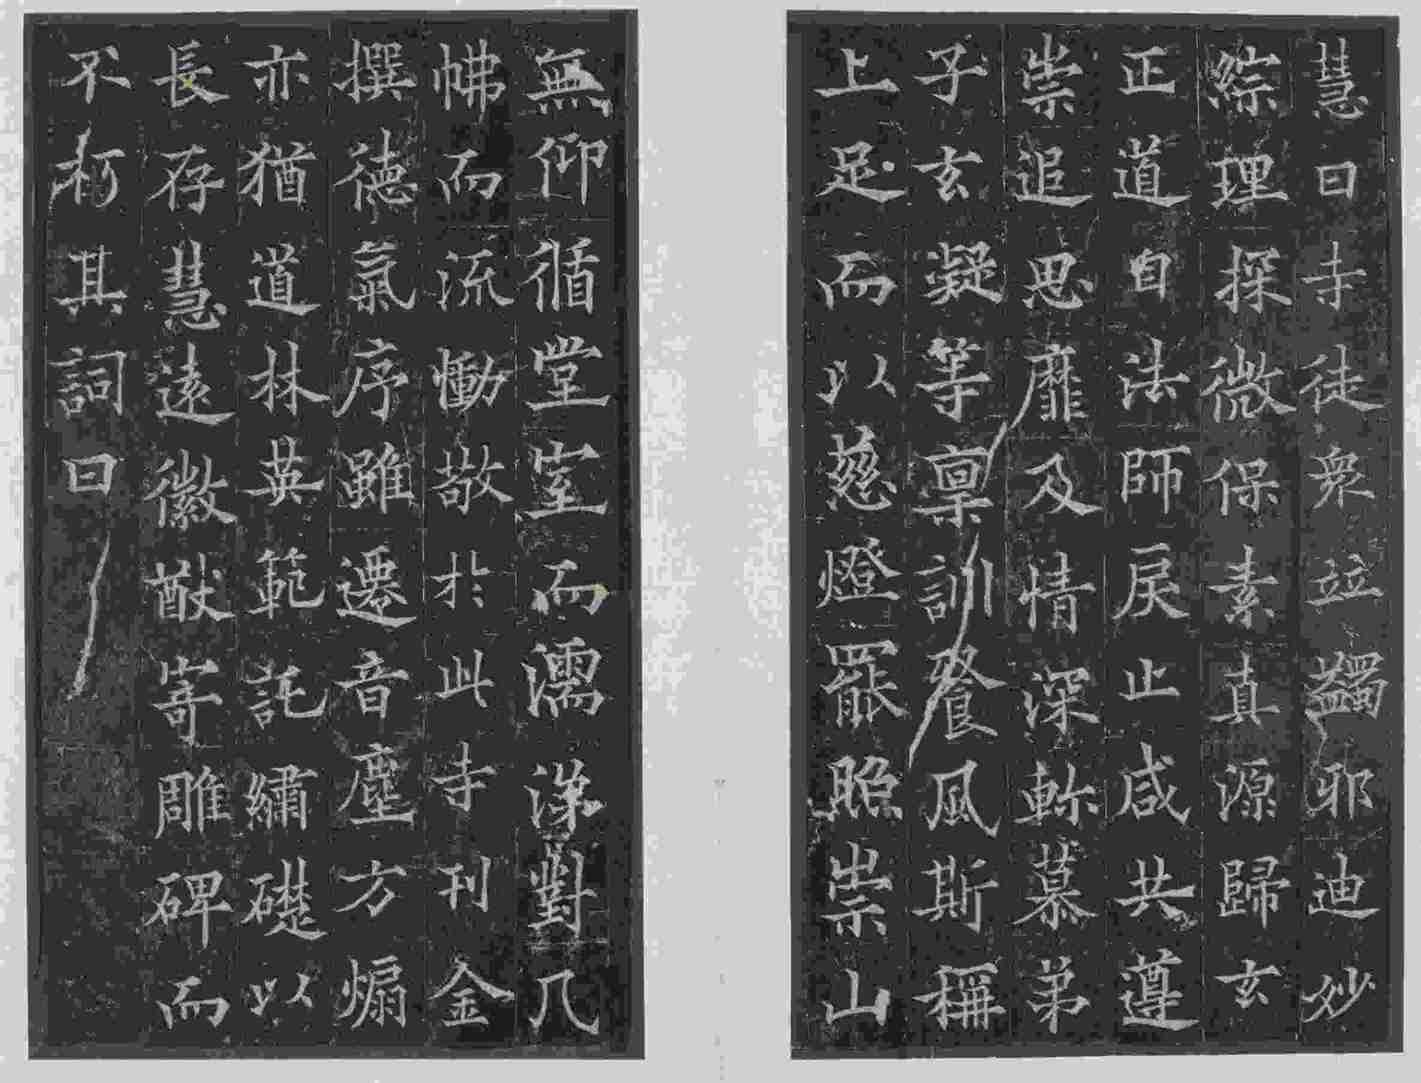 慧曰寺徒衆並蠲邪迪妙
綜理探微保素真源歸玄
正道自法師戾止咸共遵
崇追思靡及情深軫慕弟
子玄凝等稟訓餐風斯稱
上足而以慈燈罷照崇山
無仰循堂室而濡涕對几
怫而流慟敬於此寺刊金
撰德氣序雖遷音塵方煽
亦猶道林英範託繡礎以
長存慧遠徽猷寄雕碑而
不朽其詞曰